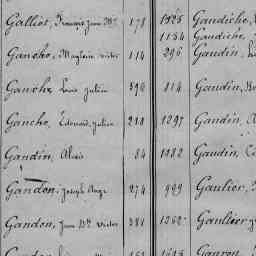 Galliot, François Jean Bte 178 1525 Gaudiche,
1154 Gaudiche,
Ganche, Magloire Victor 114 296 Gaudin,
Ganche, Louis Julien 596 814 Gaudin,
Ganche, Edouard Julien 218 1297 Gaudin, A
Gandin, Alexis 84 1082 Gaudin, C
Gandon, Joseph Ange 274 929 Gaulier,
Gandon, Jean Bte Victor 381 1362 Gaultier